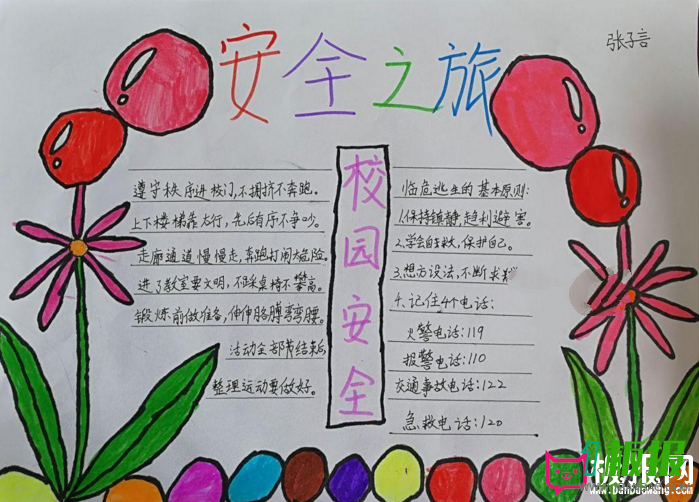 安全之旅
张子言
遵守秩序进校门,不拥挤不奔跑。
上下楼梯靠右行,先后有序不争吵。
走廊通道慢慢走,奔跑打闹太危险。
进了教室要文明,不踩桌椅不攀高。
锻炼前做准备,伸伸胳膊弯弯腰。
活动全部节结束后,
整理运动要做好。
校园安全
临危逃生的基本原则:
1.保持镇静,趋利避害。
2.学会自救,保护自己。
3.想方设法,不断求救
4.记住4个电话:
火警电话:119
报警电话:110
交通事故电话:122
急救电话:120
板报网
www.banbaowang.com